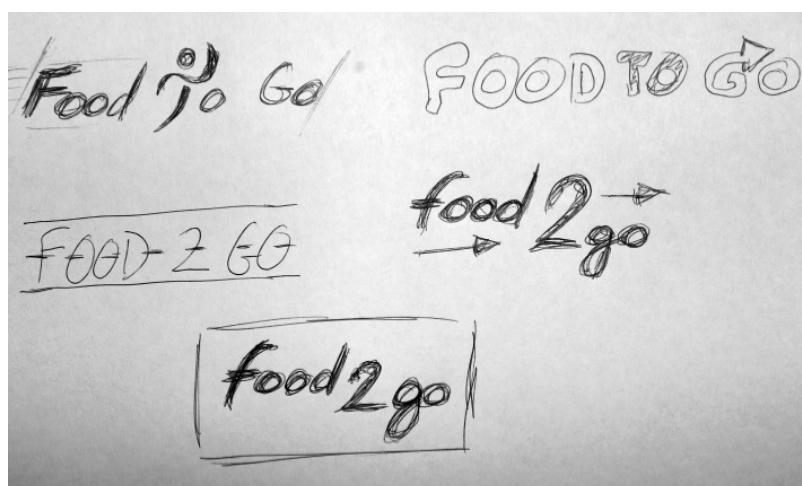 Food To Go
FOOD TO GO
food 2 go
FOOD 2 GO
food 2 go